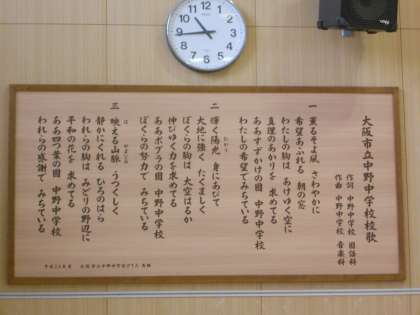 大阪市立中野中学校校歌
作詞 中野中学校 国語科
作曲 中野中学校 音楽科
一 薫るそよ風 さわやかに
希望あふれる 朝の窓
わたしの胸は あけゆく空に
真理のあかりを 求めてる
ああすずかけの園 中野中学校
わたしの希望で みちている
二 輝く陽光 身にあびて
大地に強く たくましく
ぼくらの胸は 大空はるか
伸びゆく力を 求めてる
ああポプラの園 中野中学校
ぼくらの努力で みちている
三 映える山脈 うつくしく
静かにくれる ひろのはら
われらの胸は みどりの野辺に
平和の花を 求めてる
ああ四つ葉の園 中野中学校
われらの感謝で みちている